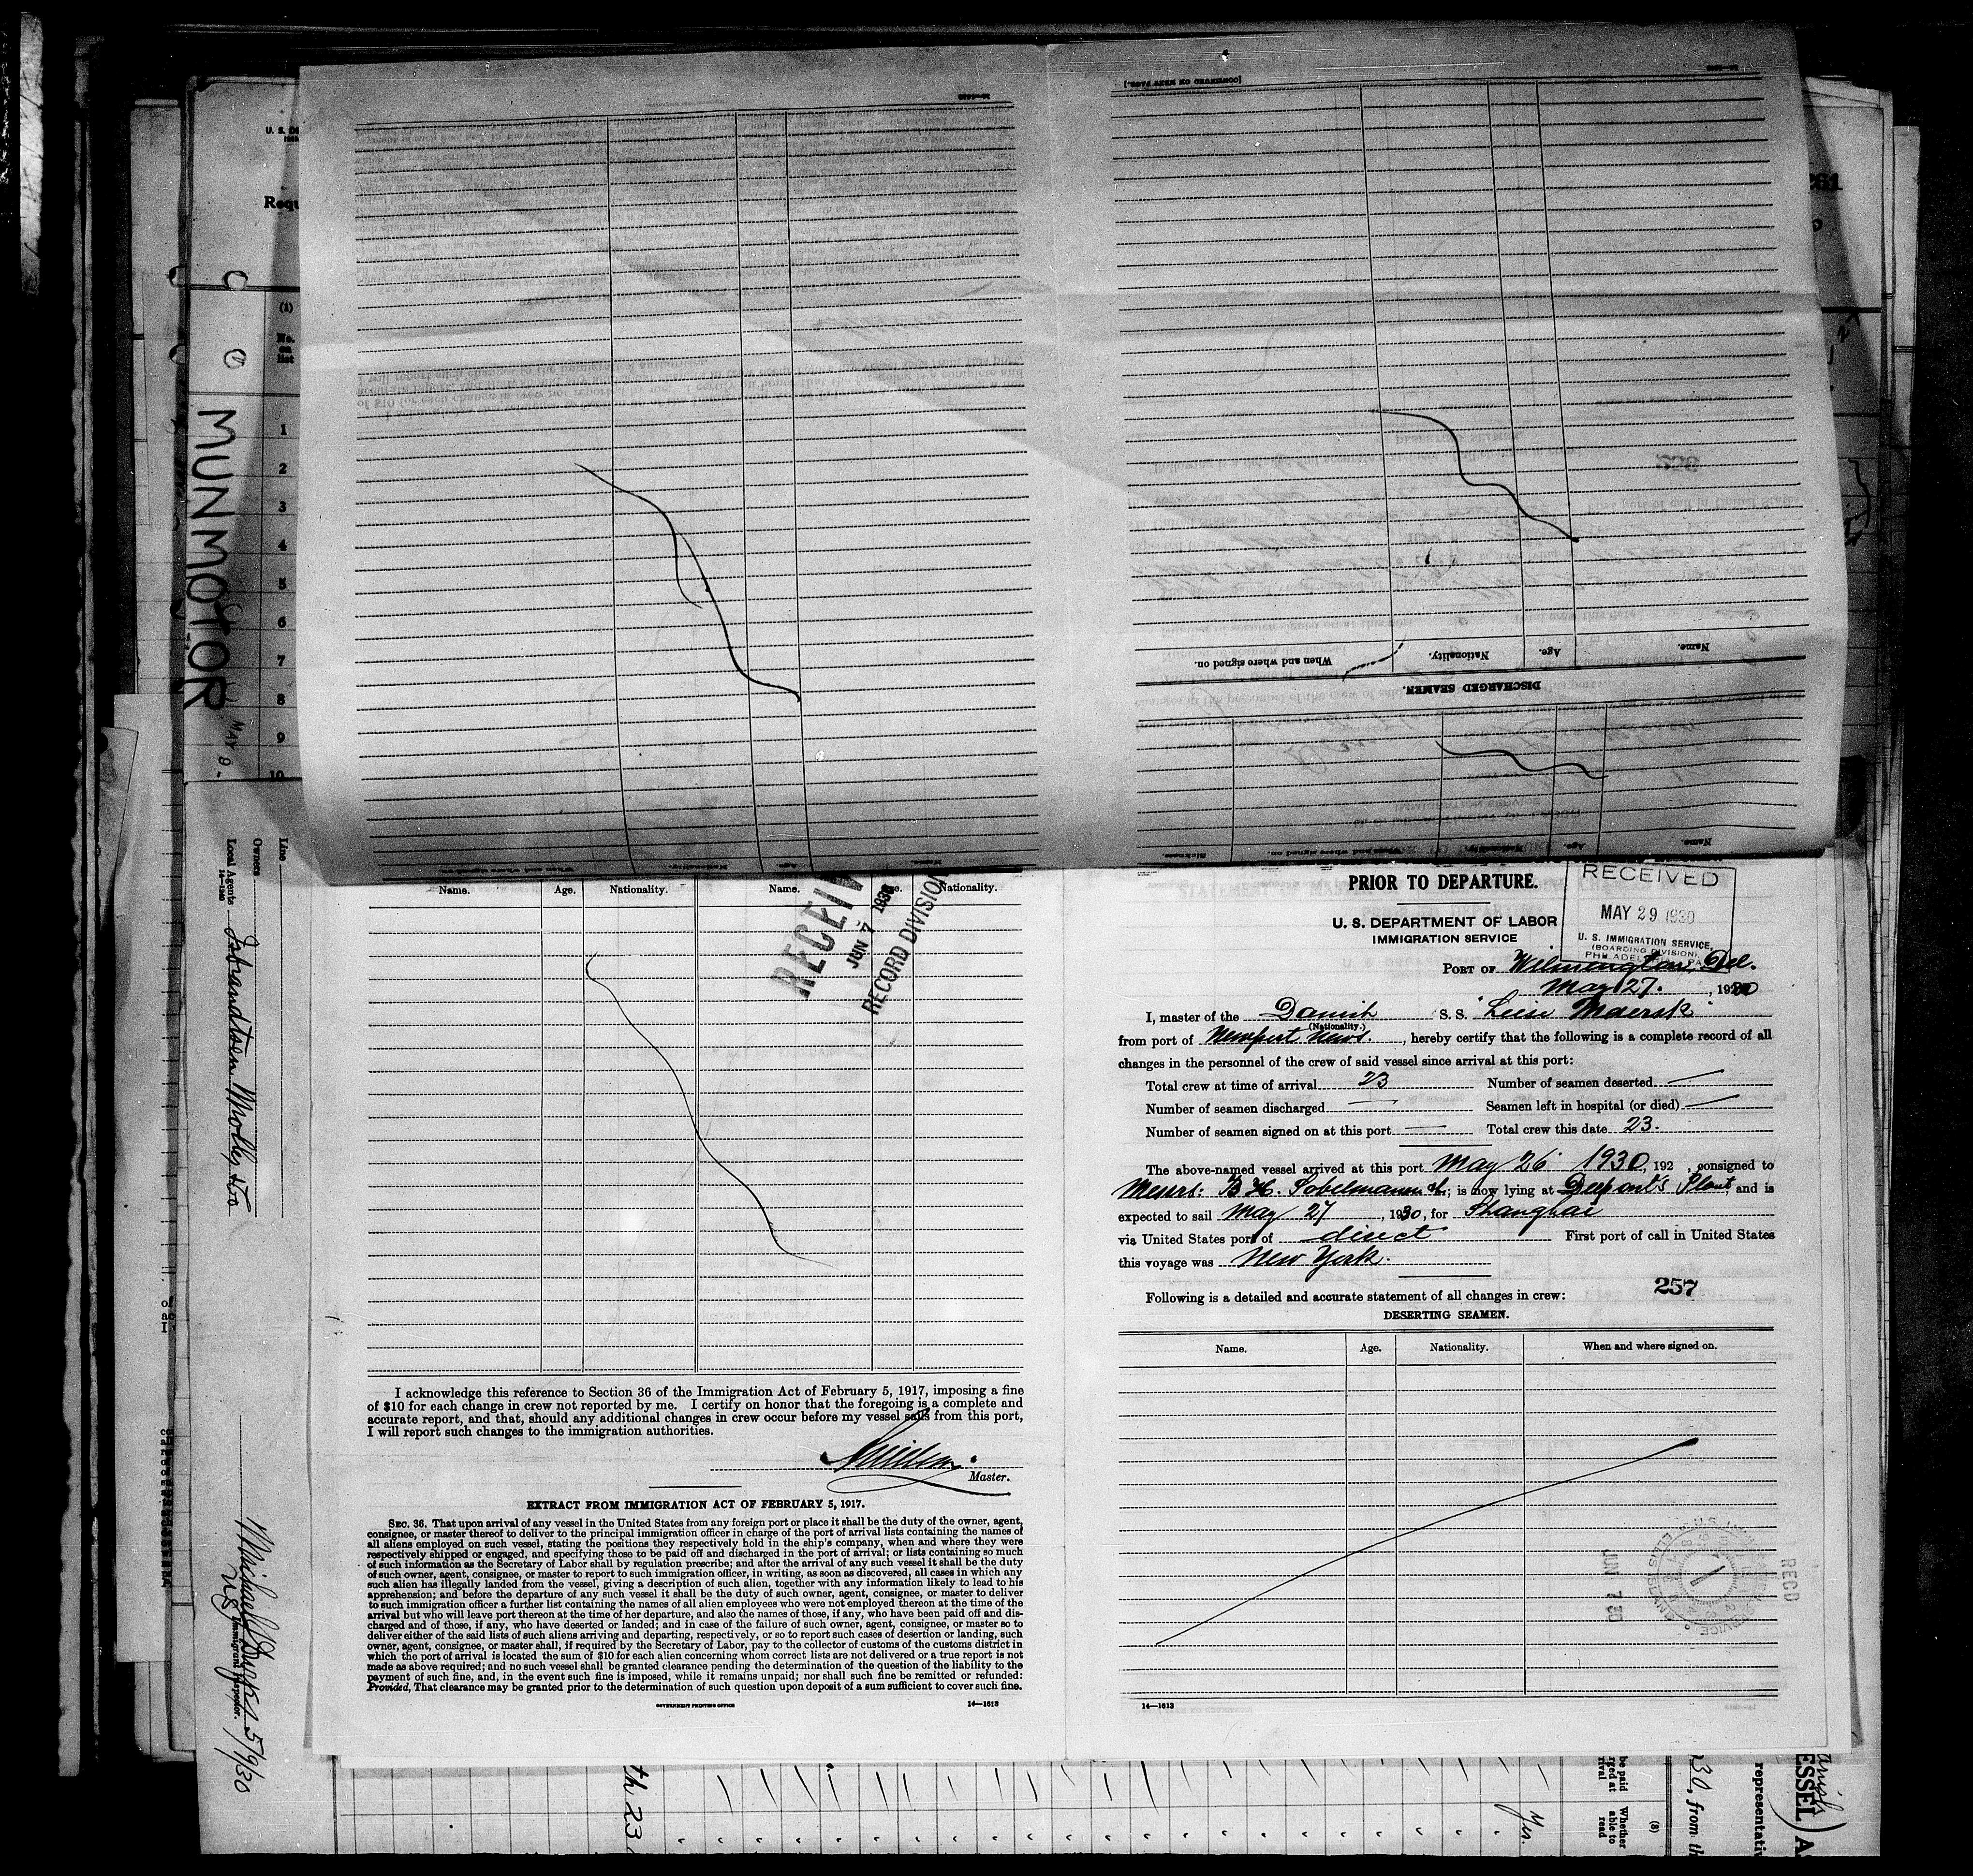 U. S. DE
Requ
(1)
No.
on
list
1
2
3
4
5
6
7
8
9
10
MUNMOTOR
MAY 9
Line
Owners
Local Agents
14-1240
5/9/30
14—1613
[CONTINUED ON NEXT PAGE.]
When and where signed on.
Nationality.
Age.
Name.
DISCHARGED SEAMEN.
256
Name.
Age.
Nationality.
Name.
Nationality.
RECEIV
JUN 7 1930
RECORD DIVISION
I acknowledge this reference to Section 36 of the Immigration Act of February 5, 1917, imposing a fine
of $10 for each change in crew not reported by me. I certify on honor that the foregoing is a complete and
accurate report, and that, should any additional changes in crew occur before my vessel sails from this port,
I will report such changes to the immigration authorities.
Master.
EXTRACT FROM IMMIGRATION ACT OF FEBRUARY 5, 1917.
SEC. 36. That upon arrival of any vessel in the United States from any foreign port or place it shall be the duty of the owner, agent,
consignee, or master thereof to deliver to the principal immigration officer in charge of the port of arrival lists containing the names of
all aliens employed on such vessel, stating the positions they respectively hold in the ship's company, when and where they were
respectively shipped or engaged, and specifying those to be paid off and discharged in the port of arrival; or lists containing so much
of such information as the Secretary of Labor shall by regulation prescribe; and after the arrival of any such vessel it shall be the duty
of such owner, agent, consignee, or master to report to such immigration officer, in writing, as soon as discovered, all cases in which any
such alien has illegally landed from the vessel, giving a description of such alien, together with any information likely to lead to his
apprehension; and before the departure of any such vessel it shall be the duty of such owner, agent, consignee, or master to deliver
to such immigration officer a further list containing the names of all alien employees who were not employed thereon at the time of the
arrival but who will leave port thereon at the time of her departure, and also the names of those, if any, who have been paid off and dis-
charged and of those, if any, who have deserted or landed; and in case of the failure of such owner, agent, consignee, or master so to
deliver either of the said lists of such aliens arriving and departing, respectively, or so to report such cases of desertion or landing, such
owner, agent, consignee, or master shall, if required by the Secretary of Labor, pay to the collector of customs of the customs district in
which the port of arrival is located the sum of $10 for each alien concerning whom correct lists are not delivered or a true report is not
made as above required; and no such vessel shall be granted clearance pending the determination of the question of the liability to the
payment of such fine, and, in the event such fine is imposed, while it remains unpaid; nor shall such fine be remitted or refunded:
Provided, That clearance may be granted prior to the determination of such question upon deposit of a sum sufficient to cover such fine.
GOVERNMENT PRINTING OFFICE
14—1613
PRIOR TO DEPARTURE.
U. S. DEPARTMENT OF LABOR
IMMIGRATION SERVICE
RECEIVED
MAY 29 1930
U. S. IMMIGRATION SERVICE,
(BOARDING DIVISION),
PHILADELPHIA, PA.
PORT OF Wilmington, Del.
May 27. , 1930
I, master of the Danish S. S. "Leise Maersk"
(Nationality.)
from port of Newport News. , hereby certify that the following is a complete record of all
changes in the personnel of the crew of said vessel since arrival at this port:
Total crew at time of arrival 23 Number of seamen deserted —
Number of seamen discharged — Seamen left in hospital (or died) —
Number of seamen signed on at this port — Total crew this date 23.
The above-named vessel arrived at this port May 26 1930, 192 , consigned to
Messrs: B. H. Sobelmann ; is now lying at Dupont's Plant, and is
expected to sail May 27 , 1930, for Shanghai
via United States port of direct First port of call in United States
this voyage was New York.
257
Following is a detailed and accurate statement of all changes in crew:
DESERTING SEAMEN.
Name. Age. Nationality. When and where signed on.
JUN 7
REC'D
14—1613
th 23
Yes.
be paid
rged at
rival
Whether
able to
read
(8)
30, from th
representativ
ESSEL